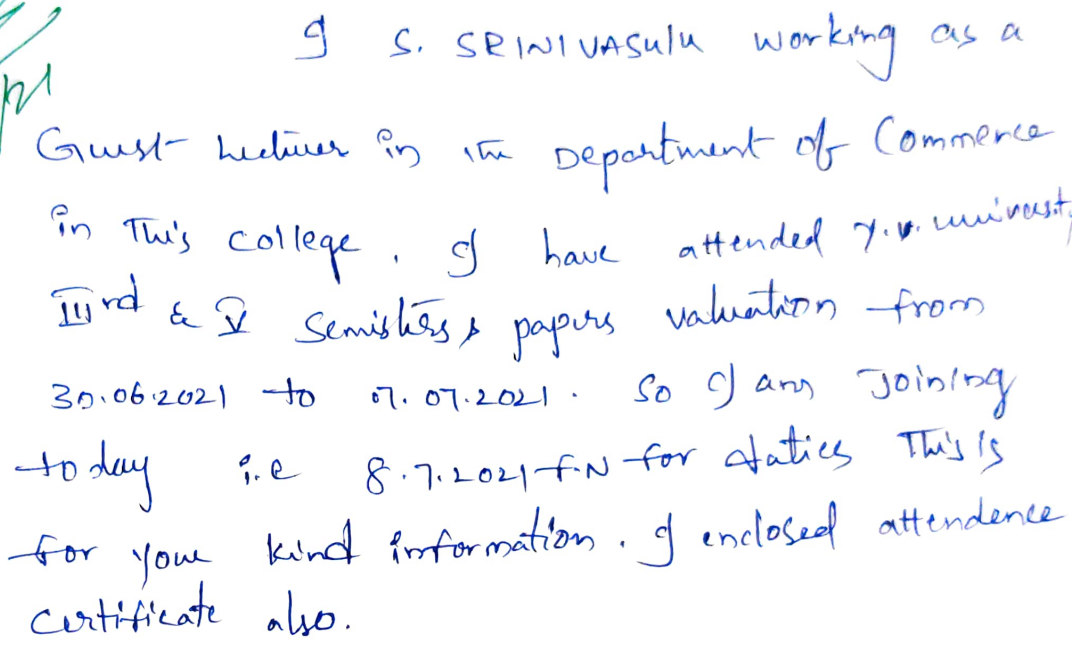 I S. SRINIVASulu working as a
Guest Lecturer in the Department of Commerce
in This college. I have attended Y.V. universit
IIIrd & V Semisters papers valuation from
30.06.2021 to 07.07.2021. So I am Joining
today i.e 8.7.2021 F.N for duties This is
for your kind information. I enclosed attendence
certificate also.